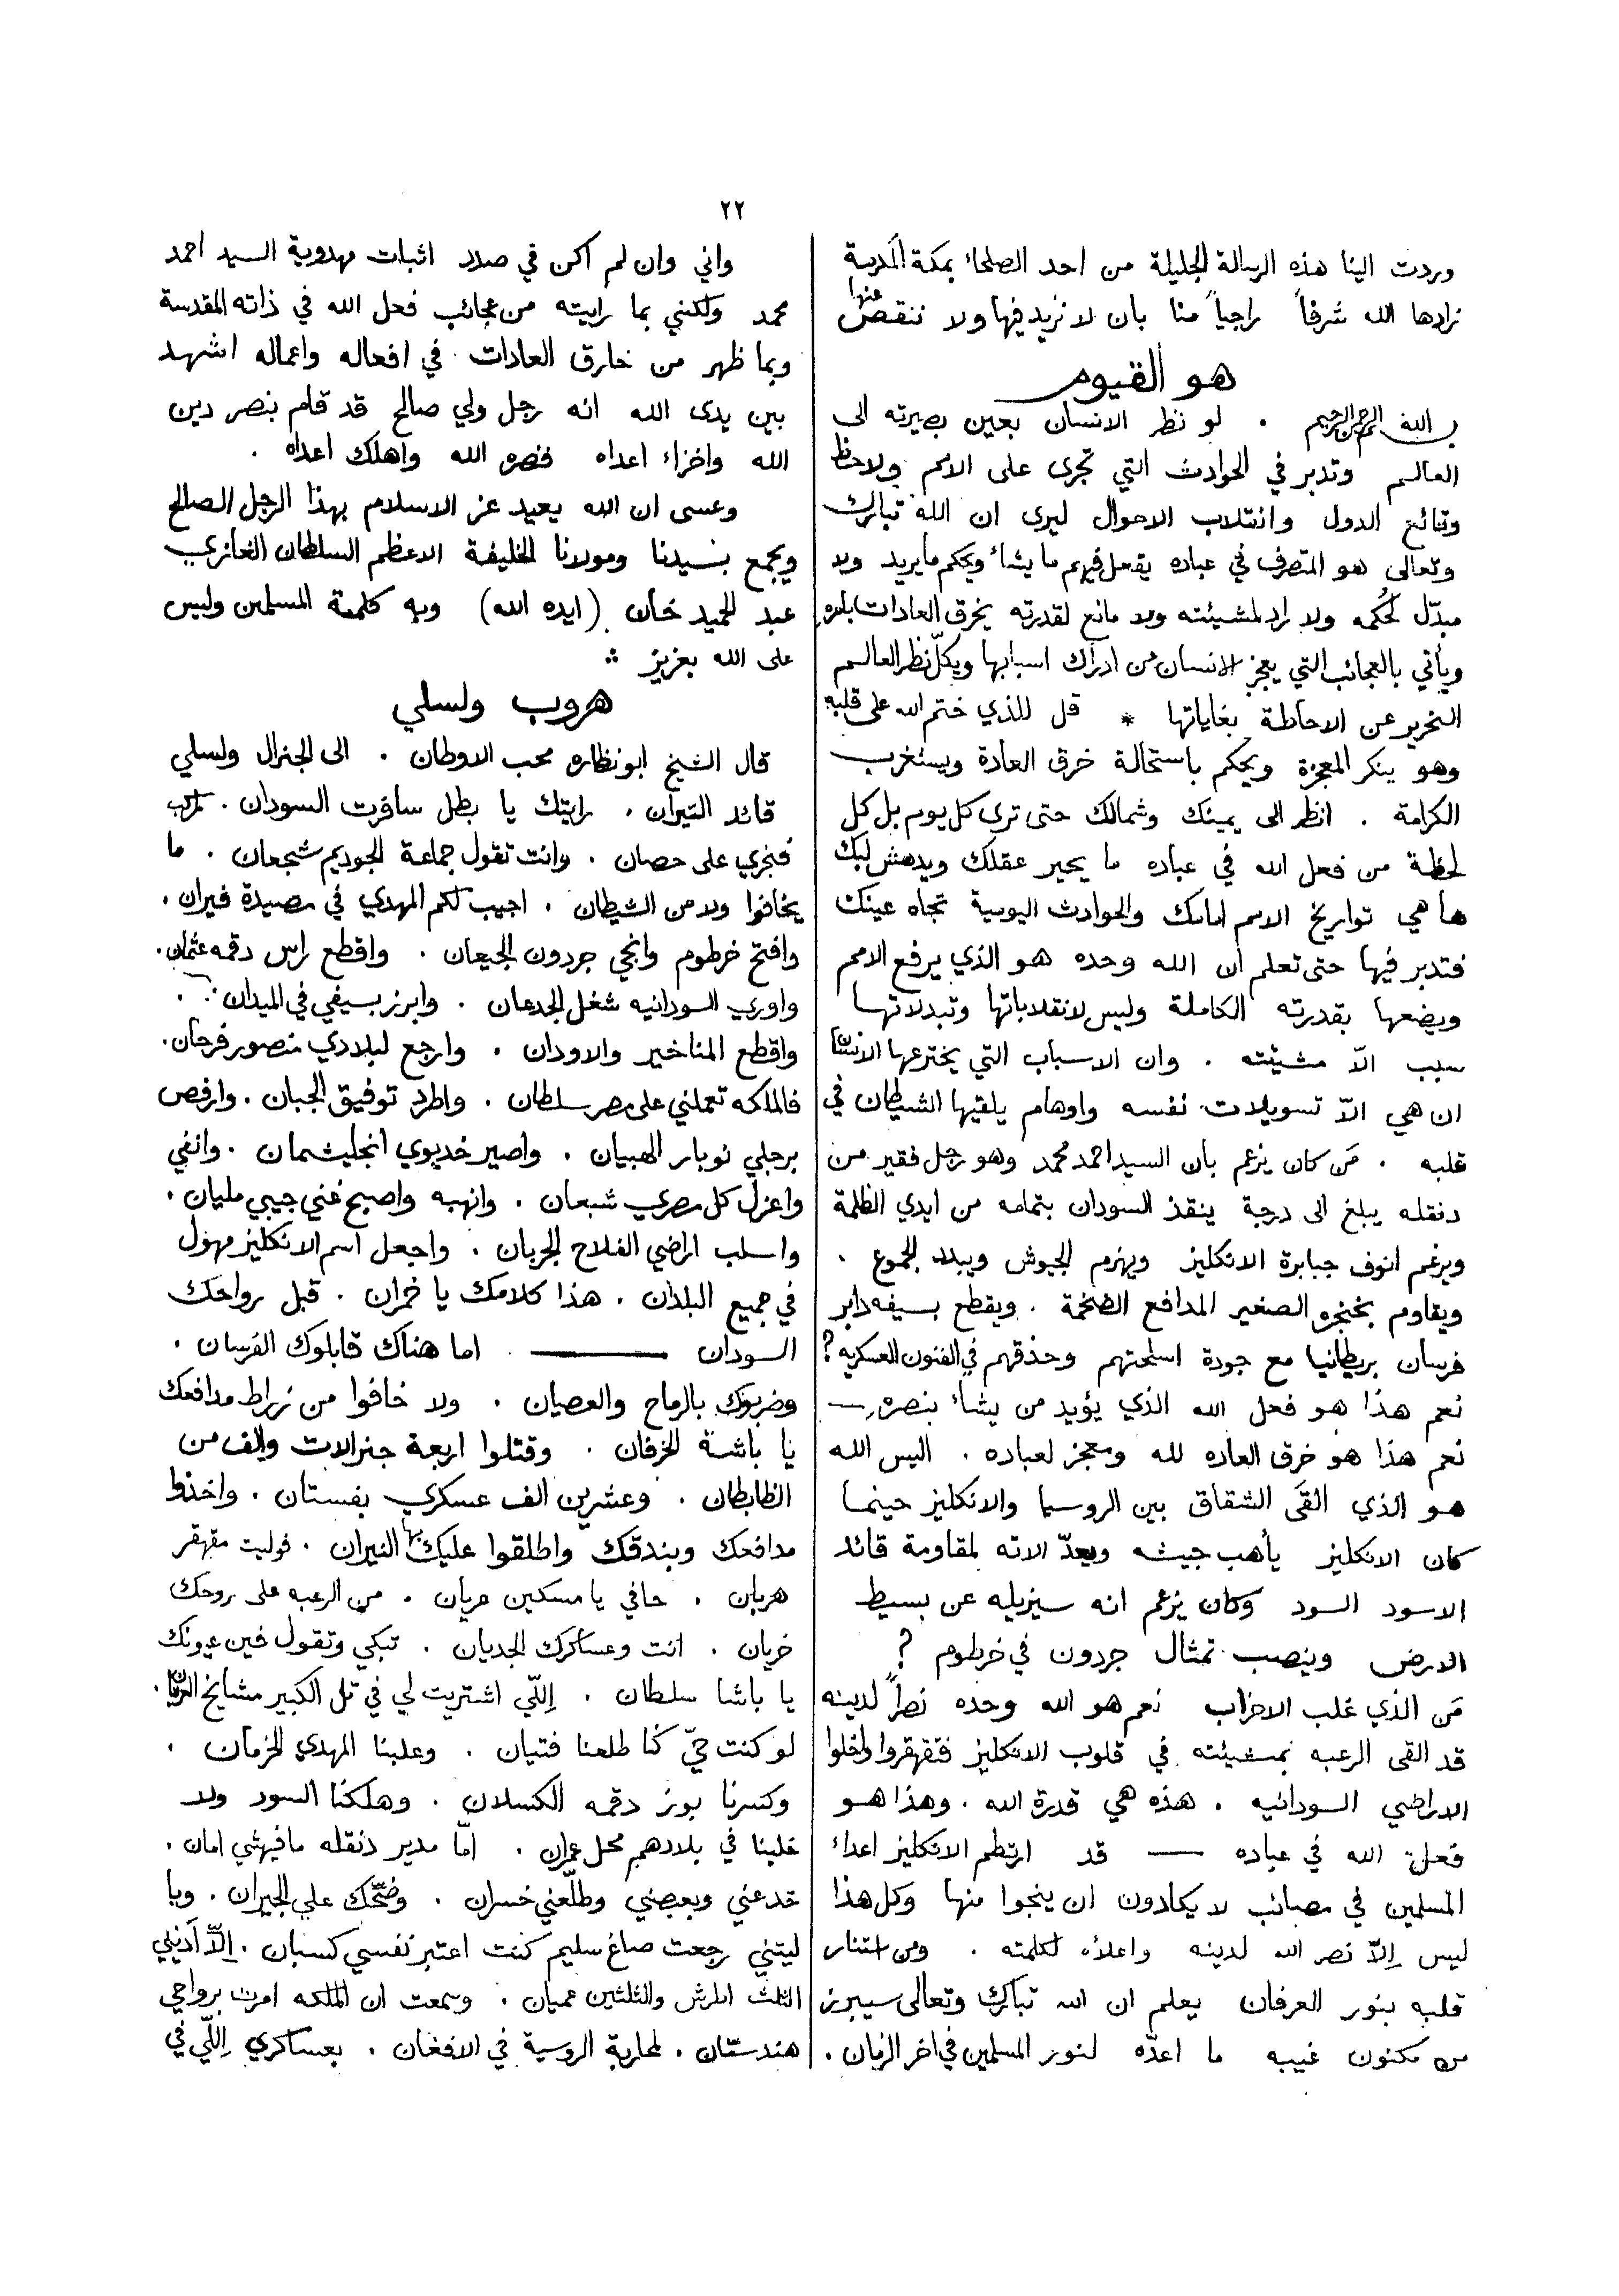 ٢٢
وردت الينا هذه الرسالة الجليلة من احد الصلحاء بمكة المكرمة
زادها الله شرفاً راجياً منا بان لا نزيد فيها ولا ننقص عنها
هو القيوم
بسم الله الرحمن الرحيم . لو نظر الانسان بعين بصيرته الى
العالم وتدبر في الحوادث التي تجرى على الامم ولاحظ
وقائع الدول وانقلاب الاحوال ليرى ان الله تبارك
وتعالى هو المتصرف في عباده يفعل فيهم ما يشاء ويحكم ما يريد ولا
مبدّل لحُكمه ولا راد لمشيئته ولا مانع لقدرته يخرق العادات بامره
ويأتي بالعجائب التي يعجز الانسان من ادراك اسبابها ويكلّ نظر العالم
النحرير عن الاحاطة بغاياتها * قل للذي ختم الله على قلبه
وهو ينكر المعجزة ويحكم باستحالة خرق العادة ويستغرب
الكرامة . انظر الى يمينك وشمالك حتى ترى كل يوم بل كل
لحظة من فعل الله في عباده ما يحير عقلك ويدهش لبك
ها هي تواريخ الامم امامك والحوادث اليومية تجاه عينك
فتدبر فيها حتى تعلم ان الله وحده هو الذي يرفع الامم
ويضعها بقدرته الكاملة وليس لانقلاباتها وتبدلاتها
سبب الاّ مشيئته . وان الاسباب التي يخترعها الانسان
ان هي الاّ تسويلات نفسه واوهام يلقيها الشيطان في
قلبه . مَن كان يزعم بان السيد احمد محمد وهو رجل فقير من
دنقله يبلغ الى درجة ينقذ السودان بتمامه من ايدي الظلمة
ويرغم انوف جبابرة الانكليز ويهزم الجيوش ويبدد الجموع .
ويقاوم بخنجره الصغير المدافع الضخمة . ويقطع بسيفه دابر
فرسان بريطانيا مع جودة اسلحتهم وحذقهم في الفنون العسكريه ؟
نعم هذا هو فعل الله الذي يؤيد من يشاء بنصره —
نعم هذا هو خرق العاده لله ومعجز لعباده . اليس الله
هو الذي القَى الشقاق بين الروسيا والانكليز حينما
كان الانكليز يأهب جيشه ويعدّ الاته لمقاومة قائد
الاسود السود وكان يزعم انه سيزيله عن بسيط
الارض وينصب تمثال جردون في خرطوم ؟
مَن الذي غلب الاحزاب نعم هو الله وحده نصراً لدينه
قد القى الرعبه بمشيئته في قلوب الانكليز فتقهقروا واخلوا
الاراضي السودانيه . هذه هي قدرة الله . وهذا هو
فعل الله في عباده — قد ارتطم الانكليز اعداء
المسلمين في مصائب لا يكادون ان ينجوا منها وكل هذا
ليس إلاّ نصر الله لدينه واعلاء لكلمته . ومن استنار
قلبه بنور العرفان يعلم ان الله تبارك وتعالى سيبرز
من مكنون غيبه ما اعدّه لنور المسلمين في اخر الزمان .
واني وان لم اكن في صدد اثبات مهدوية السيد احمد
محمد ولكنني بما رايته من عجائب فعل الله في ذاته المقدسة
وبما ظهر من خارق العادات في افعاله واعماله اشهد
بين يدى الله انه رجل ولي صالح قد قام بنصر دين
الله واخزاء اعداه فنصره الله واهلك اعداه .
وعسى ان الله يعيد عز الاسلام بهذا الرجل الصالح
ويجمع بسيدنا ومولانا الخليفة الاعظم السلطان الغازي
عبد الحميد خان (ايده الله) وبه كلمة المسلمين وليس
على الله بعزيز
هروب ولسلي
قال الشيخ ابو نظاره محب الاوطان . الى الجنرال ولسلي
قائد التيران . رايتك يا بطل سافرت السودان . تركب
فنجري على حصان . وانت تقول جماعة الجوديم شجعان . ما
يخافوا ولا من الشيطان . اجيب لكم المهدي في مصيدة فيران .
وافتح خرطوم وانجي جردون الجيعان . واقطع راس دقمه عثمان .
واوري السودانيه شغل الجدعان . وابرز بسيفي في الميدان .
واقطع المناخير والاودان . وارجع لبلادي منصور فرحان .
فالملكه تعملني على مصر سلطان . واطرد توفيق الجبان . وارفص
برجلي نوبار الهبيان . واصير خديوي انجليشمان . وانفي
واعزل كل مصري شبعان . وانهبه واصبح غني جيبي مليان .
واسلب اراضي الفلاح الجربان . واجعل اسم الانكليز مهول
في جميع البلدان . هذا كلامك يا خمران . قبل رواحك
السودان — اما هناك قابلوك الفرسان .
وضربوك بالرماح والعصيان . ولا خافوا من زراط مدافعك
يا باشة الخرفان . وقتلوا اربعة جنرالات والف من
الظابطان . وعشرين الف عسكري بفستان . واخذوا
مدافعك وبندقك واطلقوا عليك بها النيران . فوليت مقهقر
هربان . حافي يا مسكين عريان . من الرعبه على روحك
خريان . انت وعساكرك الجديان . تبكي وتقول فين عيونك
يا باشا سلطان . إللّي اشتريت لي في تل الكبير مشايخ العربان .
لو كنت حيّ كنا طلعنا فتيان . وغلبنا المهدي الخزمان .
وكسرنا بوز دقمه الكسلان . وهلكنا السود ولا
خلينا في بلادهم محل عمران . امّا مدير دنقله مافيهشي امان .
خدعني وبعبصني وطلّعني خسران . وضحّك علي الجيران . ويا
ليتني رجعت صاغ سليم كنت اعتبر نفسي كسبان . إلاّ آديني
الثلث اطرش والثلثين عميان . وسمعت ان الملكه امرت برواحي
هندستان . لمحاربة الروسية في الافغان . بعساكري إللّي في